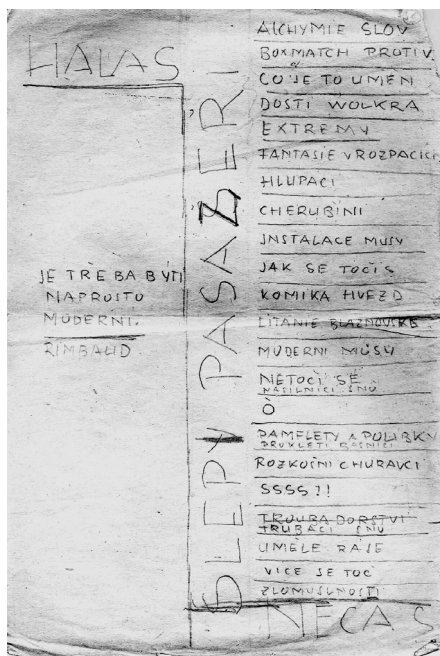 HALAS
JE TŘEBA BÝTI
NAPROSTO
MODERNÍ.
RIMBAUD
SLEPÝ PASAŽÉRI
ALCHYMIE SLOV
BOXMATCH PROTIV
CO JE TO UMĚN
DOSTI WOLKRA
EXTREMY
FANTASIE V ROZPACÍCH
HLUPACI
CHERUBINI
INSTALACE MUSY
JAK SE TOČIS
KOMIKA HVEZD
LITANIE BLAZNOVSKE
MODERNI MUSY
NETOČÍ SE
NASILNICI SNU
Ò
PAMFLETY A POLIBKY
PROKLETI BASNICI
ROZKOŠNÍ CHURAVCI
SSSS?!
TROUBADORSTVÍ
TRUBACI SNU
UMĚLE RÁJE
VICE SE TOČ
ZLOMYSLNOSTI
NEČAS